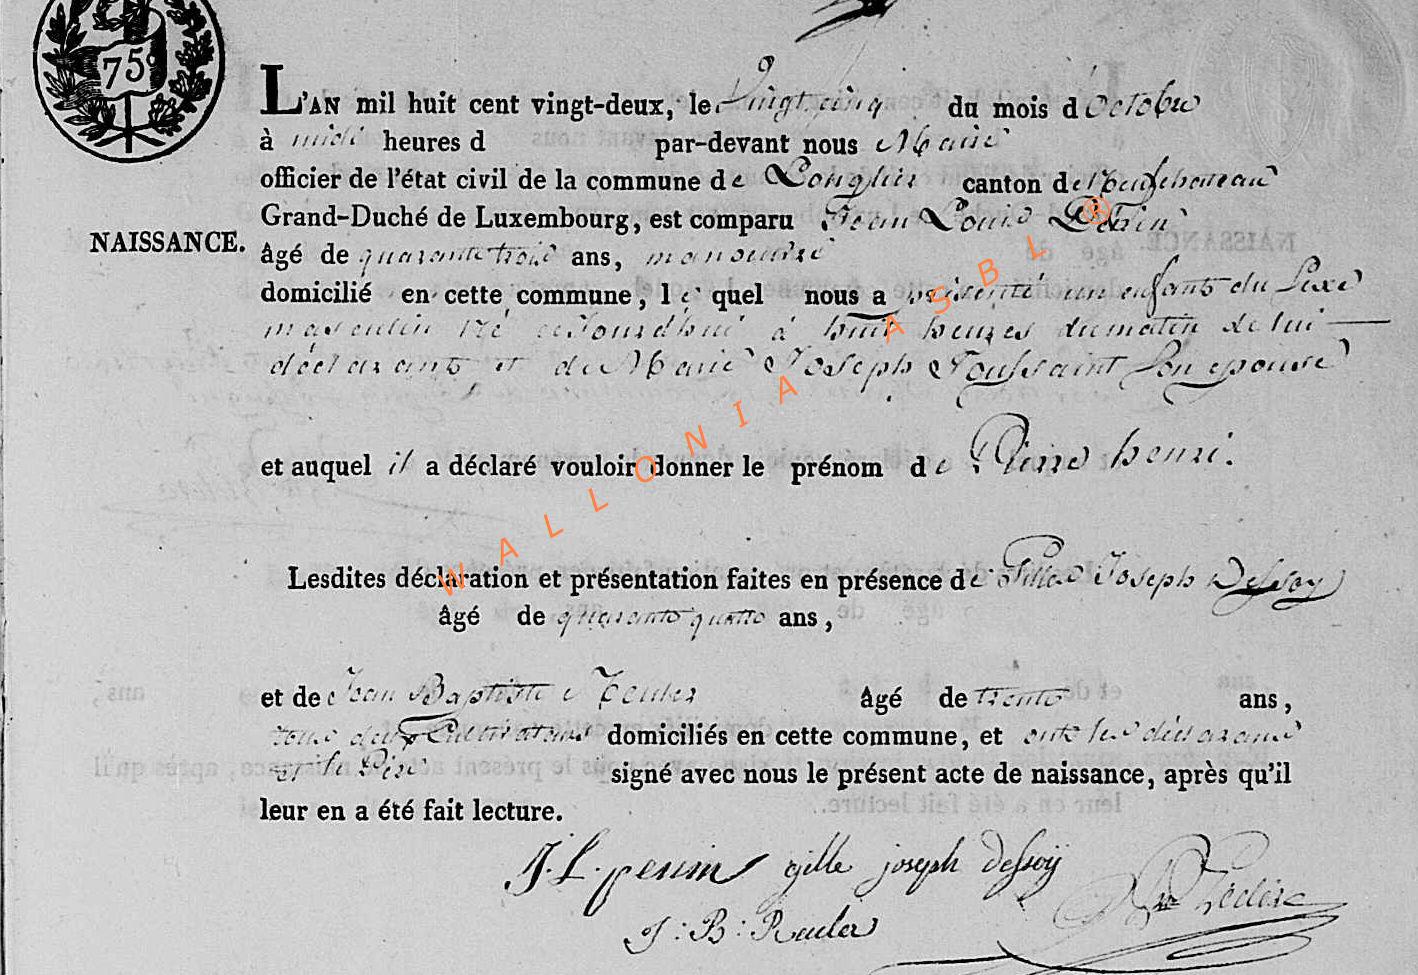 75
L'AN mil huit cent vingt-deux, le Vingt cinq du mois d'octobre
à midi heures d par-devant nous Maire
officier de l'état civil de la commune de Longlier canton de Neufchateau
Grand-Duché de Luxembourg, est comparu Jean Louis Perin
NAISSANCE.
âgé de quarante trois ans, manouvré
domicilié en cette commune, le quel nous a présenté un enfant du Sexe
masculin né à huit heures du matin de lui
déclarant et de Marie Joseph Toussaint Son epouse
et auquel il a déclaré vouloir donner le prénom de Pierre henri.
Lesdites déclaration et présentation faites en présence de Gille Joseph Dessoy
âgé de quarante quatre ans,
et de Jean Baptiste Reuler âgé de trente ans,
tous deux Cultivateurs domiciliés en cette commune, et ont les déclarans
et le Père signé avec nous le présent acte de naissance, après qu'il
leur en a été fait lecture.
J. L. perin gille joseph dessoÿ
J : B : Reuler
WALLONIA ASBL ®